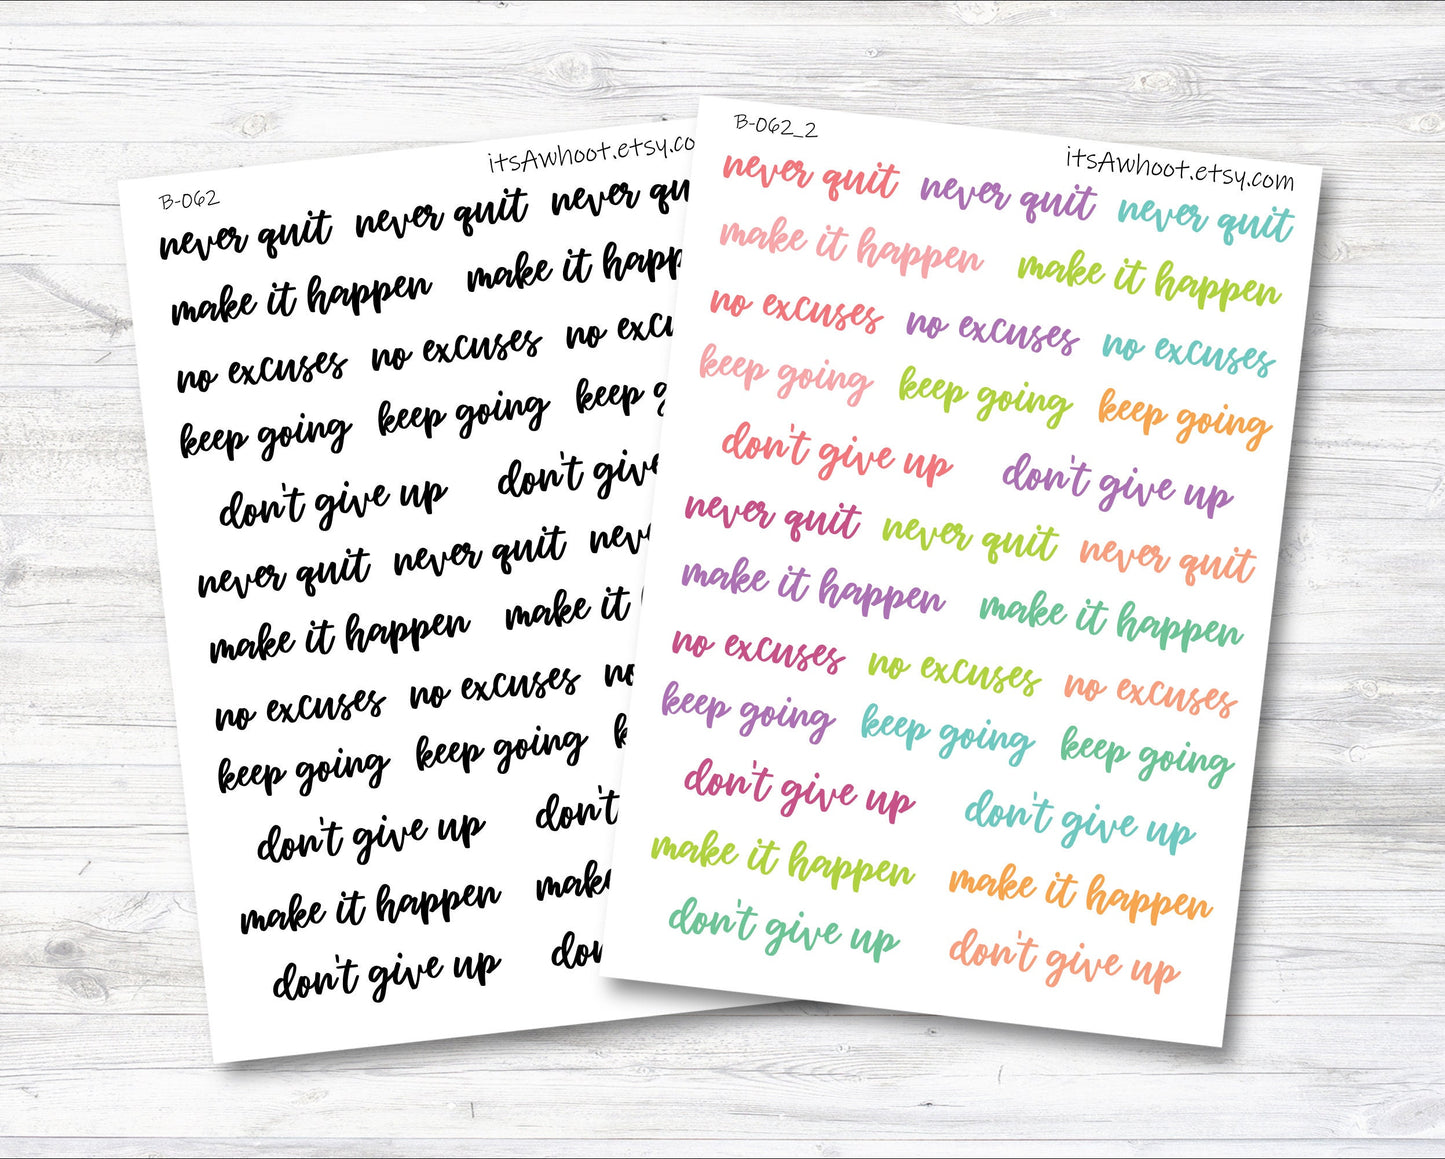 B-062
itsAwhoot.etsy.co
never quit never quit never qu
make it happen make it happ
no excuses no excuses no exc
keep going keep going keep
don't give up don't give
never quit never quit never
make it happen make it
no excuses no excuses no
keep going keep going
don't give up don't
make it happen make
don't give up don
B-062_2
itsAwhoot.etsy.com
never quit never quit never quit
make it happen make it happen
no excuses no excuses no excuses
keep going keep going keep going
don't give up don't give up
never quit never quit never quit
make it happen make it happen
no excuses no excuses no excuses
keep going keep going keep going
don't give up don't give up
make it happen make it happen
don't give up don't give up